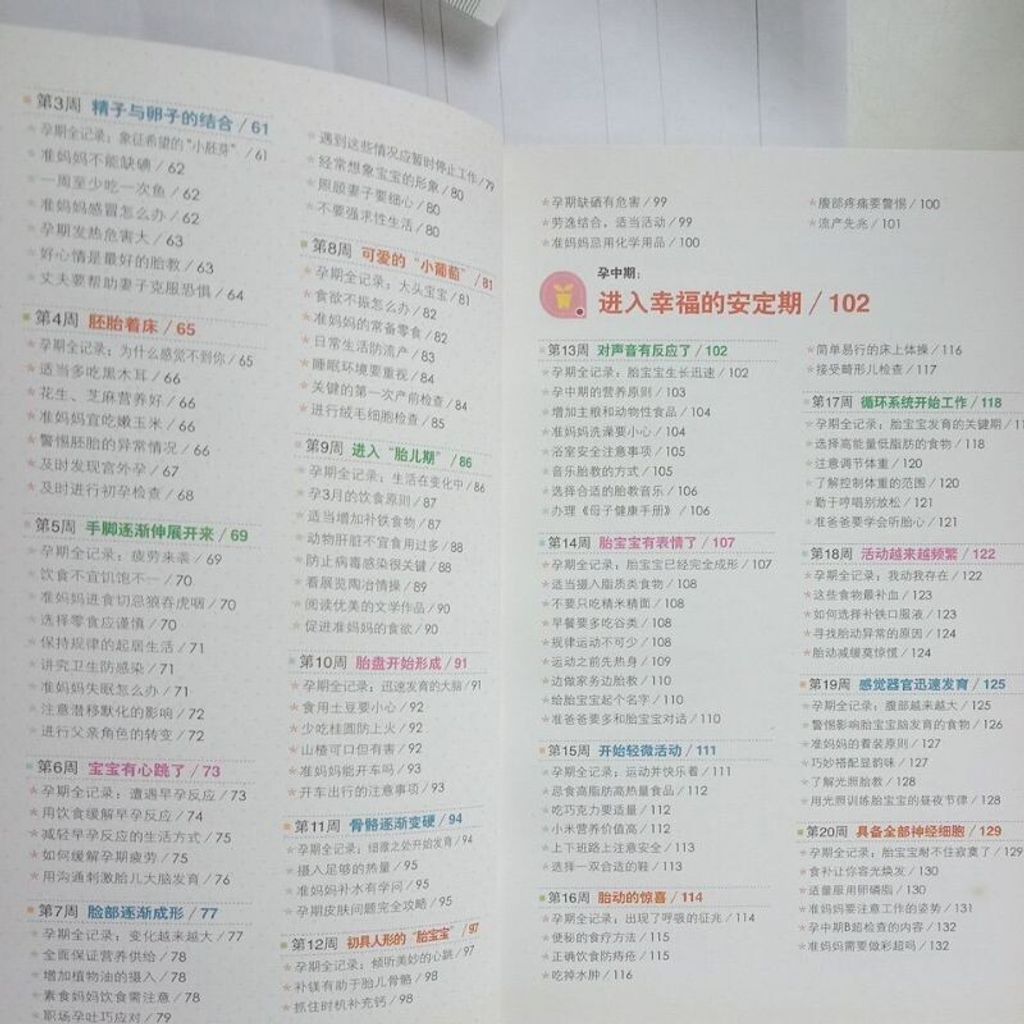 第3周 精子与卵子的结合 / 61
★孕期全记录：象征希望的“小胚芽” / 61
★准妈妈不能缺碘 / 62
★一周至少吃一次鱼 / 62
★准妈妈感冒怎么办 / 62
★孕期发热危害大 / 63
★好心情是最好的胎教 / 63
★丈夫要帮助妻子克服恐惧 / 64
第4周 胚胎着床 / 65
★孕期全记录：为什么感觉不到你 / 65
★适当多吃黑木耳 / 66
★花生、芝麻营养好 / 66
★准妈妈宜吃嫩玉米 / 66
★警惕胚胎的异常情况 / 66
★及时发现宫外孕 / 67
★及时进行初孕检查 / 68
第5周 手脚逐渐伸展开来 / 69
★孕期全记录：疲劳来袭 / 69
★饮食不宜饥饱不一 / 70
★准妈妈进食切忌狼吞虎咽 / 70
★选择零食应谨慎 / 70
★保持规律的起居生活 / 71
★讲究卫生防感染 / 71
★准妈妈失眠怎么办 / 71
★注意潜移默化的影响 / 72
★进行父亲角色的转变 / 72
第6周 宝宝有心跳了 / 73
★孕期全记录：遭遇早孕反应 / 73
★用饮食缓解早孕反应 / 74
★减轻早孕反应的生活方式 / 75
★如何缓解孕期疲劳 / 75
★用沟通刺激胎儿大脑发育 / 76
第7周 脸部逐渐成形 / 77
★孕期全记录：变化越来越大 / 77
★全面保证营养供给 / 78
★增加植物油的摄入 / 78
★素食妈妈饮食需注意 / 78
★职场孕吐巧应对 / 79
★遇到这些情况应暂时停止工作 / 79
★经常想象宝宝的形象 / 80
★照顾妻子要细心 / 80
★不要强求性生活 / 80
第8周 可爱的“小葡萄” / 81
★孕期全记录：大头宝宝 / 81
★食欲不振怎么办 / 82
★准妈妈的常备零食 / 82
★日常生活防流产 / 83
★睡眠环境要重视 / 84
★关键的第一次产前检查 / 84
★进行绒毛细胞检查 / 85
第9周 进入“胎儿期” / 86
★孕期全记录：生活在变化中 / 86
★孕3月的饮食原则 / 87
★适当增加补铁食物 / 87
★动物肝脏不宜食用过多 / 88
★防止病毒感染很关键 / 88
★看展览陶冶情操 / 89
★阅读优美的文学作品 / 90
★促进准妈妈的食欲 / 90
第10周 胎盘开始形成 / 91
★孕期全记录：迅速发育的大脑 / 91
★食用土豆要小心 / 92
★少吃桂圆防上火 / 92
★山楂可口但有害 / 92
★准妈妈能开车吗 / 93
★开车出行的注意事项 / 93
第11周 骨骼逐渐变硬 / 94
★孕期全记录：细微之处开始发育 / 94
★摄入足够的热量 / 95
★准妈妈补水有学问 / 95
★孕期皮肤问题完全攻略 / 95
第12周 初具人形的“胎宝宝” / 97
★孕期全记录：倾听美妙的心跳 / 97
★补镁有助于胎儿骨骼 / 98
★抓住时机补充钙 / 98
★孕期缺硒有危害 / 99
★劳逸结合，适当活动 / 99
★准妈妈忌用化学用品 / 100
★腹部疼痛要警惕 / 100
★流产先兆 / 101
孕中期：
进入幸福的安定期 / 102
第13周 对声音有反应了 / 102
★孕期全记录：胎宝宝生长迅速 / 102
★孕中期的营养原则 / 103
★增加主粮和动物性食品 / 104
★准妈妈洗澡要小心 / 104
★浴室安全注意事项 / 105
★音乐胎教的方式 / 105
★选择合适的胎教音乐 / 106
★办理《母子健康手册》 / 106
第14周 胎宝宝有表情了 / 107
★孕期全记录：胎宝宝已经完全成形 / 107
★适当摄入脂质类食物 / 108
★不要只吃精米精面 / 108
★早餐要多吃谷类 / 108
★规律运动不可少 / 108
★运动之前先热身 / 109
★边做家务边胎教 / 110
★给胎宝宝起个名字 / 110
★准爸爸要多和胎宝宝对话 / 110
第15周 开始轻微活动 / 111
★孕期全记录：运动并快乐着 / 111
★忌食高脂肪高热量食品 / 112
★吃巧克力要适量 / 112
★小米营养价值高 / 112
★上下班路上注意安全 / 113
★选择一双合适的鞋 / 113
第16周 胎动的惊喜 / 114
★孕期全记录：出现了呼吸的征兆 / 114
★便秘的食疗方法 / 115
★正确饮食防痔疮 / 115
★吃掉水肿 / 116
★简单易行的床上体操 / 116
★接受畸形儿检查 / 117
第17周 循环系统开始工作 / 118
★孕期全记录：胎宝宝发育的关键期 / 11
★选择高能量低脂肪的食物 / 118
★注意调节体重 / 120
★了解控制体重的范围 / 120
★勤于哼唱别放松 / 121
★准爸爸要学会听胎心 / 121
第18周 活动越来越频繁 / 122
★孕期全记录：我动我存在 / 122
★这些食物最补血 / 123
★如何选择补铁口服液 / 123
★寻找胎动异常的原因 / 124
★胎动减缓莫惊慌 / 124
第19周 感觉器官迅速发育 / 125
★孕期全记录：腹部越来越大 / 125
★警惕影响胎宝宝脑发育的食物 / 126
★准妈妈的着装原则 / 127
★巧妙搭配显韵味 / 127
★了解光照胎教 / 128
★用光照训练胎宝宝的昼夜节律 / 128
第20周 具备全部神经细胞 / 129
★孕期全记录：胎宝宝耐不住寂寞了 / 129
★食补让你容光焕发 / 130
★适量服用卵磷脂 / 130
★准妈妈要注意工作的姿势 / 131
★孕中期B超检查的内容 / 132
★准妈妈需要做彩超吗 / 132